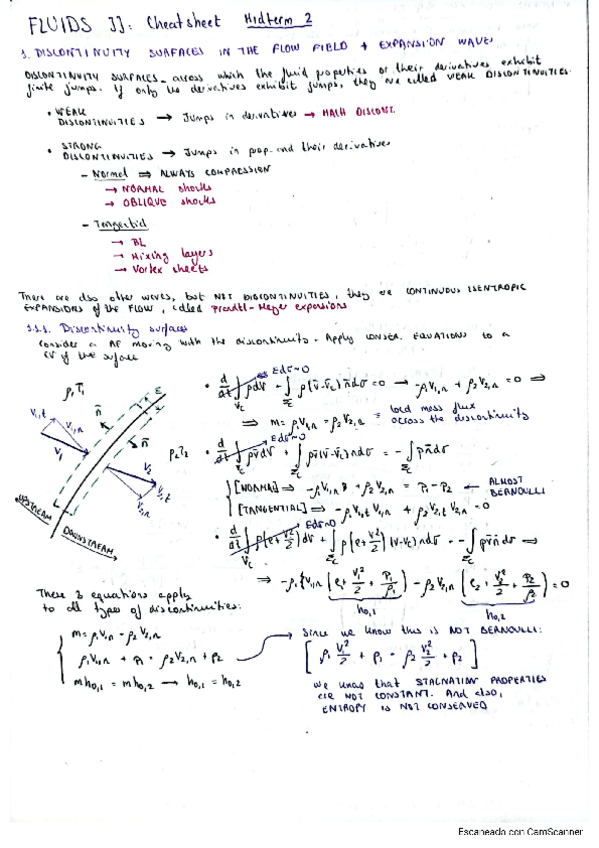 FLUIDS II: Cheatsheet Midterm 2
1. DISCONTINUITY SURFACES IN THE FLOW FIELD + EXPANSION WAVES
DISCONTINUITY SURFACES_ across which the fluid properties or their derivatives exhibit
finite jumps. If only the derivatives exhibit jumps, they are called WEAK DISCONTINUITIES.
• WEAK
DISCONTINUITIES → Jumps in derivatives → MACH DISCONT.
• STRONG
DISCONTINUITIES → Jumps in prop. and their derivatives
– Normal ⇒ ALWAYS COMPRESSION
→ NORMAL shocks
→ OBLIQUE shocks
– Tangential
→ BL
→ Mixing layers
→ Vortex sheets
There are also other waves, but NOT DISCONTINUITIES, they are CONTINUOUS ISENTROPIC
EXPANSIONS of the FLOW, called Prandtl-Meyer expansions
1.1.1. Discontinuity surfaces
Consider a RF moving with the discontinuity. Apply CONSER. EQUATIONS to a
CV of the surface
ρ₁T₁
V₁,t
V₁,n
V₁
n̄
ε
n̄
ρ₂T₂
V₂
V₂,t
V₂,n
UPSTREAM
DOWNSTREAM
• d/dt ∫ ρdV + ∫ ρ(v̄-v̄c)n̄dσ = 0 → -ρ₁V₁,n + ρ₂V₂,n = 0 ⇒
Vc Σc εdσ~0
⇒ m = ρ₁V₁,n = ρ₂V₂,n = local mass flux
across the discontinuity
• d/dt ∫ ρv̄dV + ∫ ρv̄(v̄-v̄c)n̄dσ = -∫ pn̄dσ
Vc Σc Σc εdσ~0
[NORMAL] ⇒ -ρ₁V₁,n² + ρ₂V₂,n² = P₁-P₂ ← ALMOST
BERNOULLI
[TANGENTIAL] ⇒ -ρ₁V₁,t V₁,n + ρ₂V₂,t V₂,n = 0
• d/dt ∫ ρ(e+v²/2)dV + ∫ ρ(e+v²/2)(v-vc)ndσ = -∫ pv̄n dσ ⇒
Vc Σc Σc εdσ=0
⇒ -ρ₁V₁,n (e₁+V₁²/2 + P₁/ρ₁) - ρ₂V₂,n (e₂+V₂²/2 + P₂/ρ₂) = 0
h₀,₁
h₀,₂
These 3 equations apply
to all types of discontinuities:
m = ρ₁V₁,n = ρ₂V₂,n
ρ₁V₁,n + p₁ = ρ₂V₂,n + p₂
mh₀,₁ = mh₀,₂ → h₀,₁ = h₀,₂
→ Since we know this is NOT BERNOULLI:
[ρ₁ V₁²/2 + p₁ = ρ₂ V₂²/2 + p₂]
we know that STAGNATION PROPERTIES
are NOT CONSTANT. And also,
ENTROPY IS NOT CONSERVED
Escaneado con CamScanner